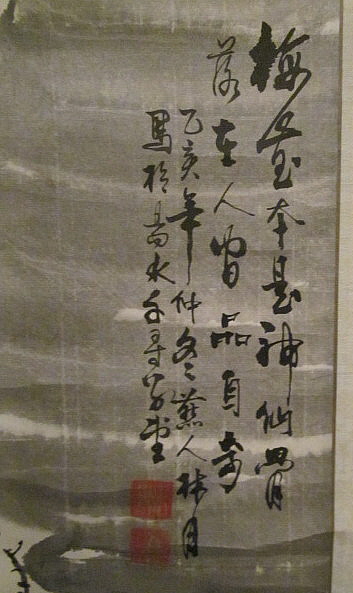 梅花本是神仙骨
落在人間品自奇
乙亥年仲冬蕉人林月
寫於水千尋草堂